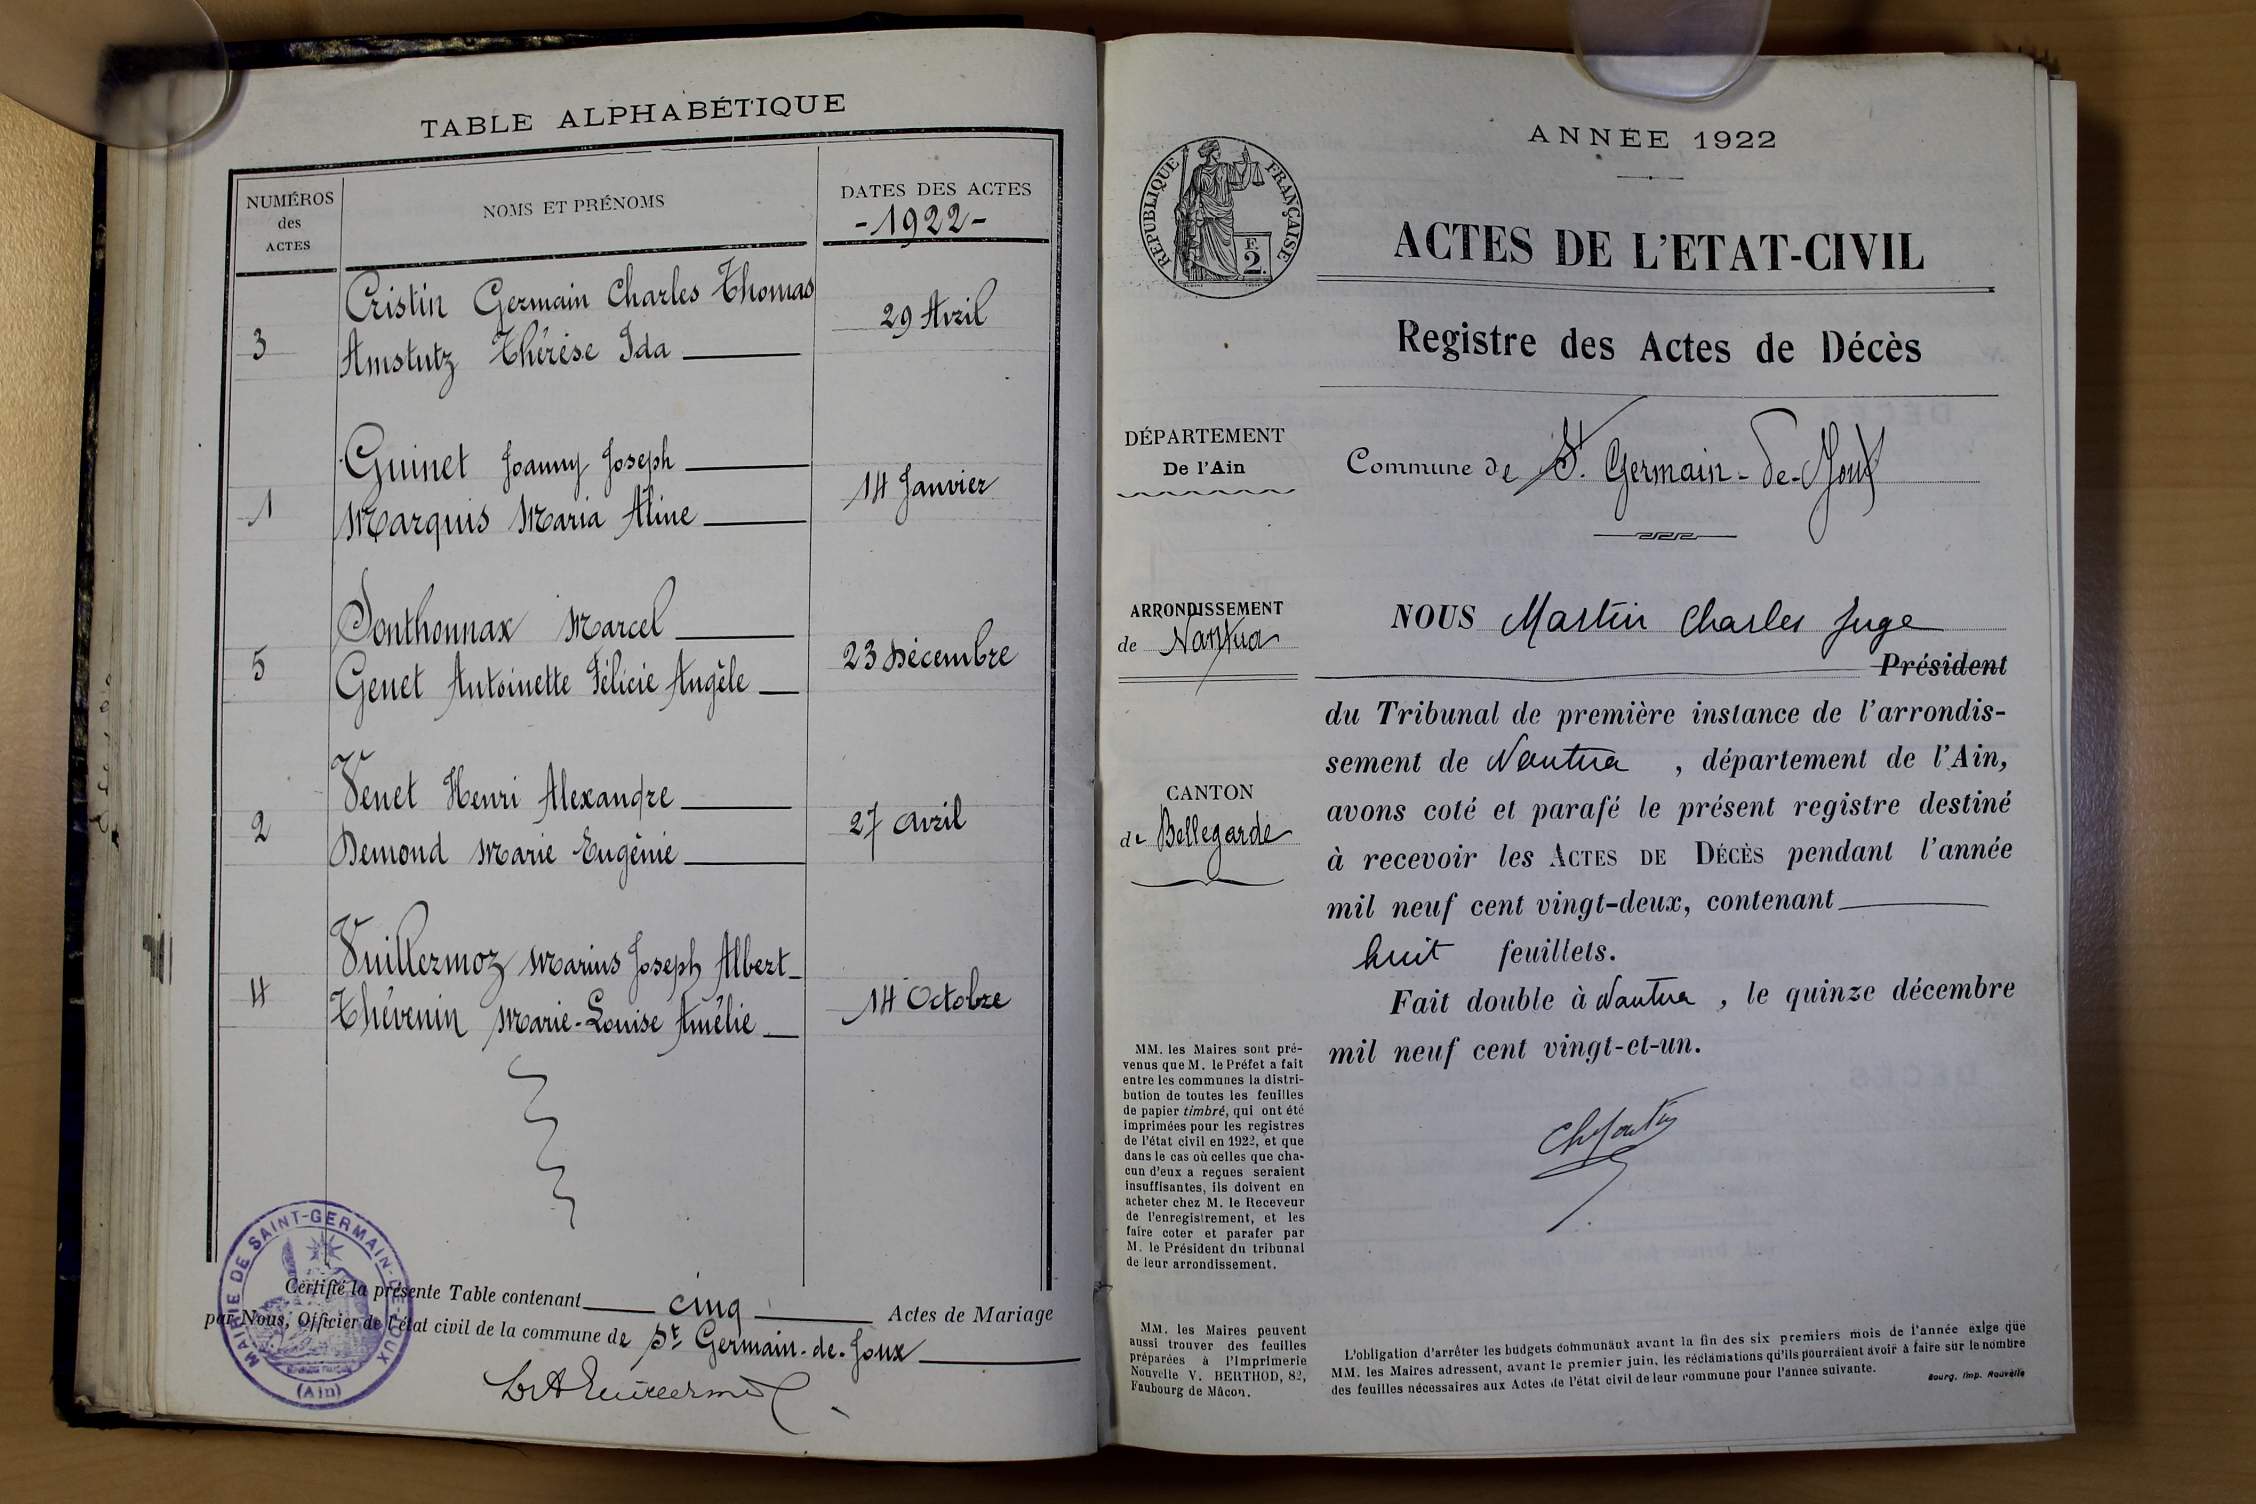 TABLE ALPHABÉTIQUE
NUMÉROS
des
ACTES
NOMS ET PRÉNOMS
DATES DES ACTES
-1922-
Cristin Germain Charles Thomas
3
Amstutz Thérèse Ida
29 Avril
Guinet Joanny Joseph
1
Marquis Maria Aline
14 Janvier
Sonthonnax Marcel
5
Genet Antoinette Félicie Angèle
23 Décembre
Venet Henri Alexandre
2
Demond Marie Eugénie
27 avril
Vuillermoz Marius Joseph Albert
4
Thévenin Marie-Louise Amélie
14 Octobre
MAIRIE DE SAINT-GERMAIN-DE-JOUX
(Ain)
Certifié la présente Table contenant cinq Actes de Mariage
par Nous, Officier de l'état civil de la commune de St Germain-de-Joux
ANNÉE 1922
RÉPUBLIQUE FRANÇAISE
F.
2.
ACTES DE L'ETAT-CIVIL
Registre des Actes de Décès
DÉPARTEMENT
De l'Ain
Commune de St. Germain-de-Joux
ARRONDISSEMENT
de Nantua
NOUS Martin Charles Juge
Président
du Tribunal de première instance de l'arrondis-
sement de Nantua , département de l'Ain,
CANTON
de Bellegarde
avons coté et parafé le présent registre destiné
à recevoir les ACTES DE DÉCÈS pendant l'année
mil neuf cent vingt-deux, contenant
huit feuillets.
Fait double à Nantua , le quinze décembre
mil neuf cent vingt-et-un.
MM. les Maires sont pré-
venus que M. le Préfet a fait
entre les communes la distri-
bution de toutes les feuilles
de papier timbré, qui ont été
imprimées pour les registres
de l'état civil en 1922, et que
dans le cas où celles que cha-
cun d'eux a reçues seraient
insuffisantes, ils doivent en
acheter chez M. le Receveur
de l'enregistrement, et les
faire coter et parafer par
M. le Président du tribunal
de leur arrondissement.
MM. les Maires peuvent
aussi trouver des feuilles
préparées à l'Imprimerie
Nouvelle V. BERTHOD, 82,
Faubourg de Mâcon.
L'obligation d'arrêter les budgets communaux avant la fin des six premiers mois de l'année exige que
MM. les Maires adressent, avant le premier juin, les réclamations qu'ils pourraient avoir à faire sur le nombre
des feuilles nécessaires aux Actes de l'état civil de leur commune pour l'année suivante.
Bourg, Imp. Nouvelle